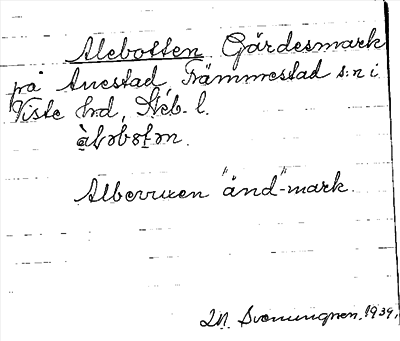 Alebotten Gärdesmark
på Anestad, Främmestad s:n i
Viste hd, Skb. l.
àləbotən.
Albevuxen "änd"-mark.
1939.